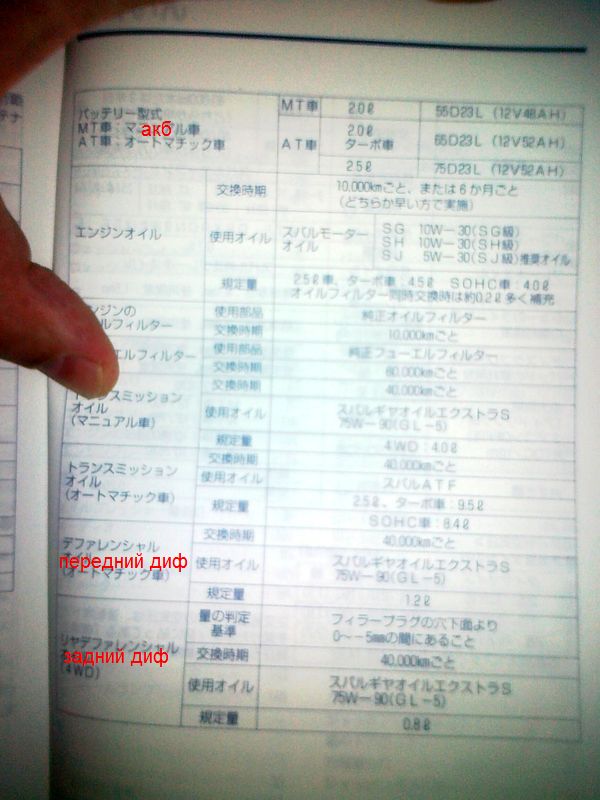 バッテリー型式
MT車:マニュアル車
AT車:オートマチック車
акб
MT車 2.0ℓ 55D23L (12V48AH)
AT車 2.0ℓ ターボ車 65D23L (12V52AH)
2.5ℓ 75D23L (12V52AH)
エンジンオイル
交換時期 10,000kmごと、または6か月ごと
(どちらか早い方で実施)
使用オイル スバルモーターオイル
SG 10W-30(SG級)
SH 10W-30(SH級)
SJ 5W-30(SJ級)推奨オイル
規定量 2.5ℓ車、ターボ車:4.5ℓ SOHC車:4.0ℓ
オイルフィルター同時交換時は約0.2ℓ多く補充
ンジンの
ルフィルター
使用部品 純正オイルフィルター
交換時期 10,000kmごと
エルフィルター
使用部品 純正フューエルフィルター
交換時期 60,000kmごと
トランスミッション
オイル
(マニュアル車)
交換時期 40,000kmごと
使用オイル スバルギヤオイルエクストラS
75W-90(GL-5)
規定量 4WD:4.0ℓ
トランスミッション
オイル
(オートマチック車)
交換時期 40,000kmごと
使用オイル スバルATF
規定量 2.5ℓ、ターボ車:9.5ℓ
SOHC車:8.4ℓ
デファレンシャル
передний диф
(オートマチック車)
交換時期 40,000kmごと
使用オイル スバルギヤオイルエクストラS
75W-90(GL-5)
規定量 1.2ℓ
リヤデファレンシャル
задний диф
(4WD)
量の判定
基準
フィラープラグの穴下面より
0~-5mmの間にあること
交換時期 40,000kmごと
使用オイル スバルギヤオイルエクストラS
75W-90(GL-5)
規定量 0.8ℓ